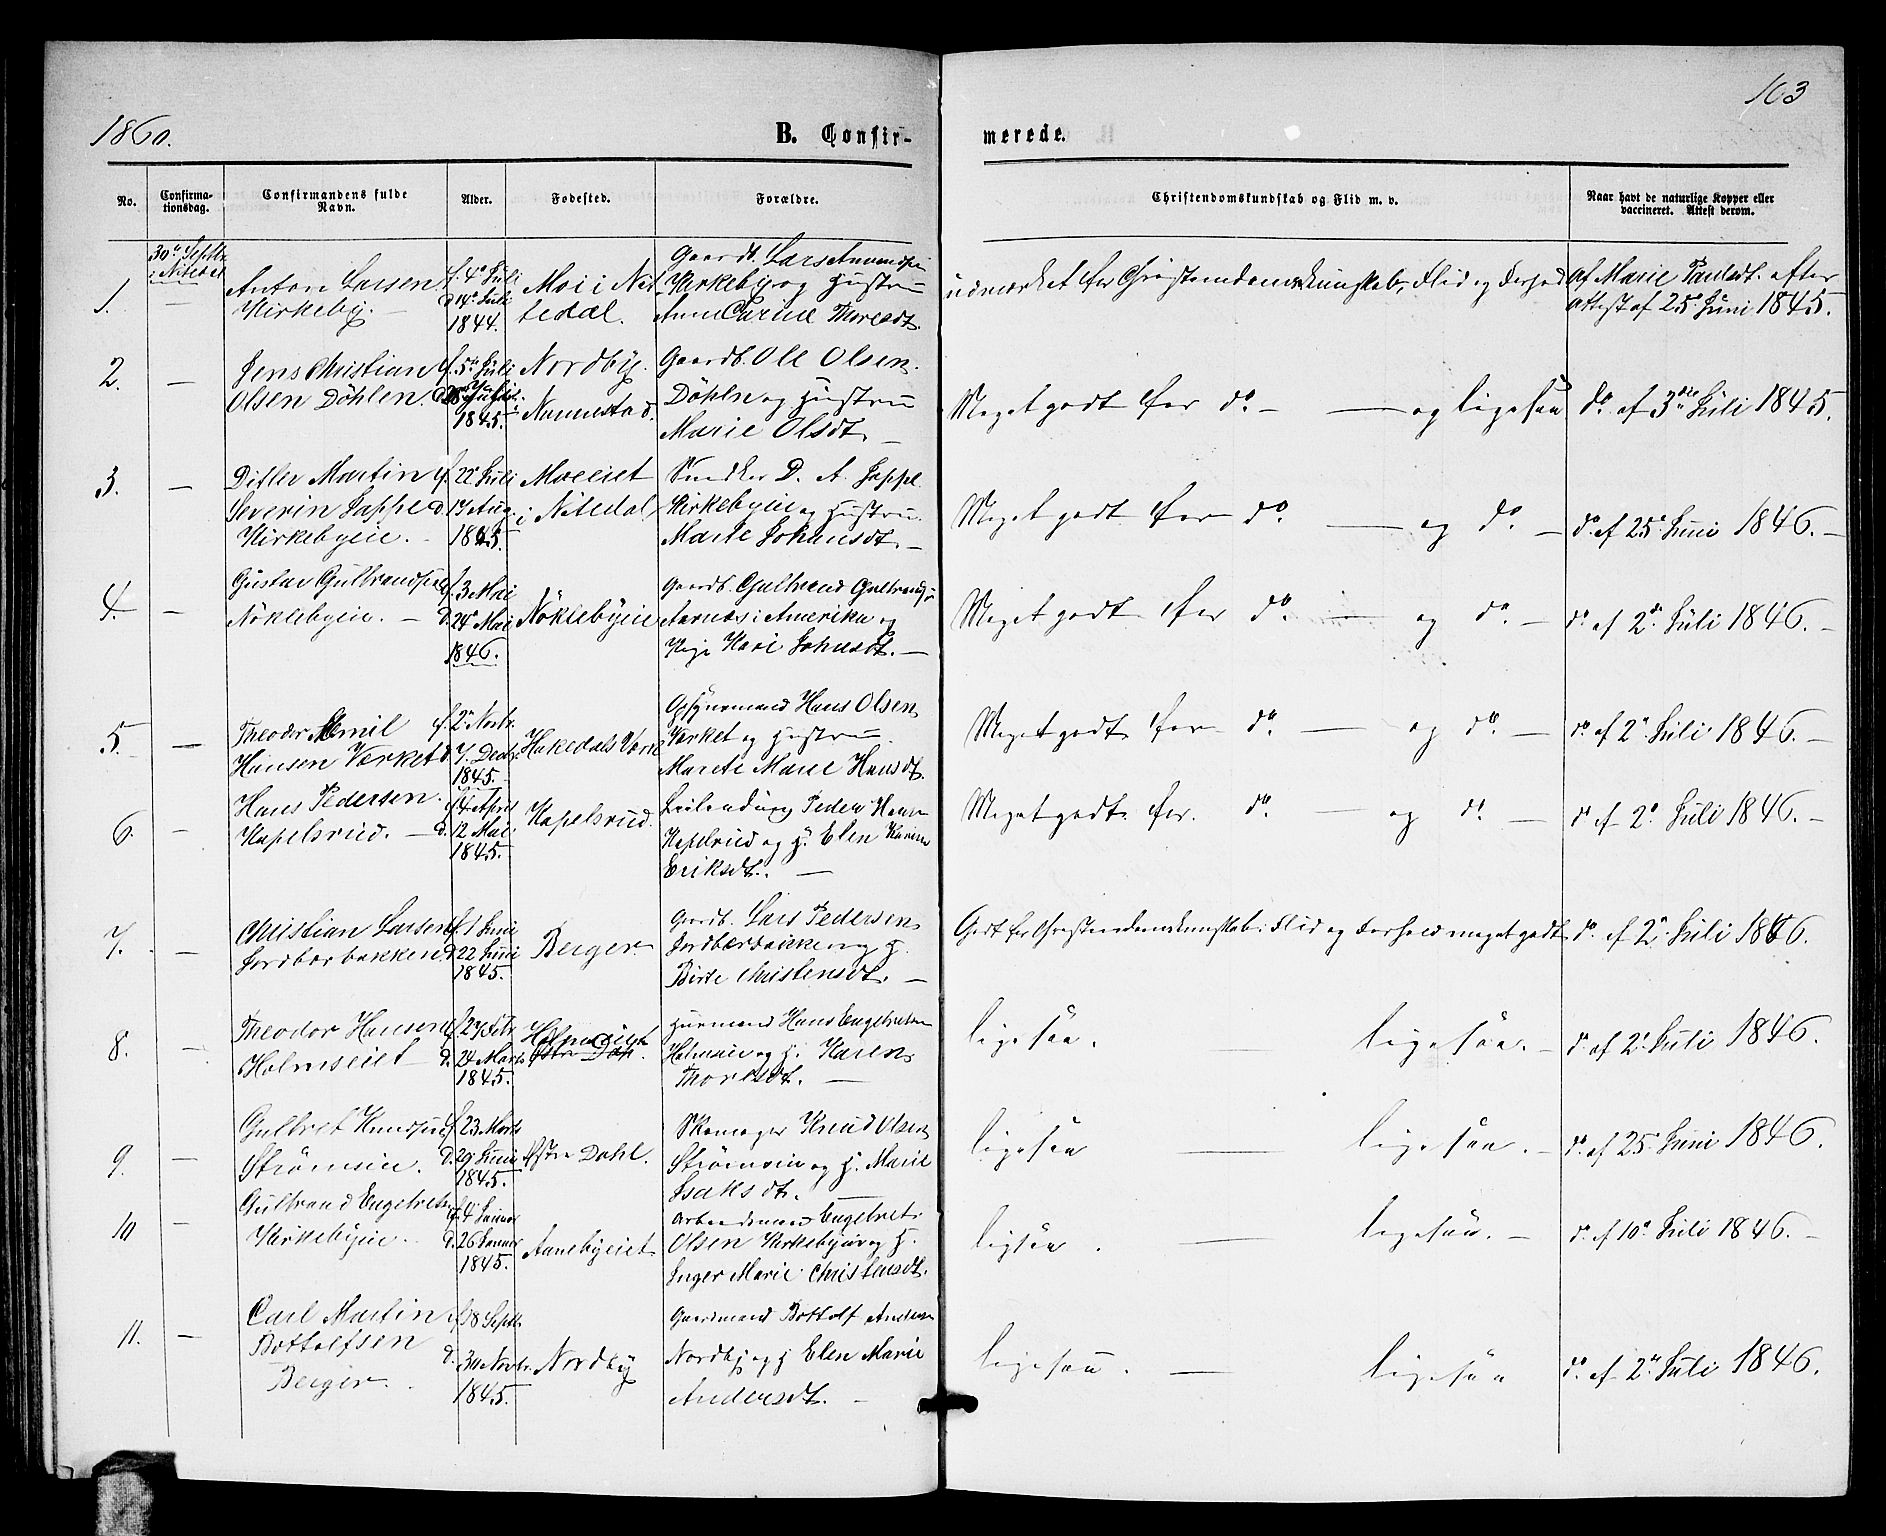 1860.
B. Confir-
merede.
103
No.
Confirma-
tionsdag.
Confirmandens fulde
Navn.
Alder.
Fødested.
Forældre.
Christendomskundskab og Flid m. v.
Naar havt de naturlige Kopper eller
vaccineret. Attest derom.
30te Septbr
i Nitedal
1. —
Anton Larsen
Kirkeby. —
f. 4de Juli
d. 14de Juli
1844.
Moi i Nit
tedal.
Gaardb. Lars Amundsen
Kirkeby og Hustru
Anne Carine Thoresdt.
udmærket for Christendomskundskab, Flid og Forhold
Af Marie Paulsdt. efter
attest af 25de Juni 1845.
2. —
Jens Christian
Olsen Döhlen.
f. 5te Juli
1845.
Nordbye.
i Nannestad.
Gaardb. Ole Olsen.
Döhlen og Hustru
Marie Olsdt. —
Meget godt for do. — — og ligesaa
do. af 3die Juli 1845.
3. —
Ditlev Martin
Severin Jappe
Kirkebyeie. —
f. 22 Juli
d. 17 Aug.
1845.
Moeeiet
i Nitedal
Snedker D. A. Jappe
Kirkebyeie og Hustru
Marte Johansdt. —
Meget godt for do. — og do. —
do. af 25de Juni 1846. —
4. —
Gustav Gulbrandsen
Nöklebyeie. —
f. 3 Mai
d. 24de Mai
1846.
Nöklebyeie
Gaardb. Gulbrand Gulbrandsen
Aarnæs i Amerika og
Pige Kari Johnsdt. —
Meget godt for do. — og do. —
do. af 2de Juli 1846. —
5. —
Theodor Emil
Hansen Værket
f. 2de Novbr.
d. 7. Decbr.
1845.
Hakedals Værk
Opsynsmand Hans Olsen
Værket og Hustru
Marete Marie Hansdt.
Meget godt for do. — og do. —
do. af 2de Juli 1846. —
6. —
Hans Pedersen
Kapelsrud. —
f. 4 April
d. 12 Mai.
1845.
Kapelsrud.
Leilending Peder Hansen
Kapelsrud og H. Elen Karine
Eriksdt. —
Meget godt for. do. — og do. —
do. af 2de Juli 1846. —
7. —
Christian Larsen
Jordbærbakken.
f. 1 Juni
d. 22 Juni
1845.
Berger
Gaardb. Lars Pedersen
Jordbærbakken og H.
Birte Christensdt. —
Godt for Christendomskundskab; Flid og Forhold meget godt
do. af 2de Juli 1846.
8. —
Theodor Hansen
Holmseiet —
f. 27 Febr
d. 24 Marts
1845.
Holmseiet
Huusmand Hans Engebretsen
Holmseie og H. Karen
Thoresdt. —
ligesaa. ligesaa. —
do. af 2de Juli 1846.
9. —
Gulbret Knudsen
Strömseie.
f. 23 Marts
d. 29 Juni
1845.
Østre Dahl.
Skomager Knud Olsen
Strömseie og H. Marie
Isaksdt. —
ligesaa — ligesaa. —
do. af 25 Juni 1846.
10 —
Gulbrand Engebretsen
Kirkebyeie.
f. 4 Januar
d. 26 Januar
1845.
Aanebyeiet
Arbeidsmand Engebret
Olsen Kirkebyeie og H.
Inger Marie Christensdt.
ligesaa. — ligesaa. —
do. af 10de Juli 1846. —
11. —
Carl Martin
Bottolfsen
Berger.
f. 18 Septbr
d. 30 Novbr.
1845.
Nordby
Gaardmand Bottolf Andersen
Nordby og H. Elen Marie
Andersdt. —
ligesaa. — ligesaa
do. af 2de Juli 1846.